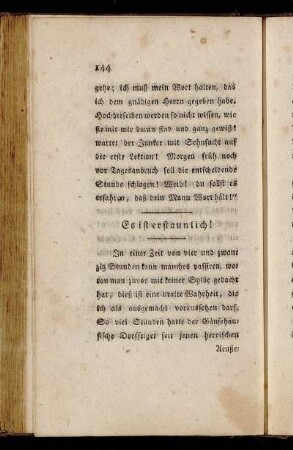 144
gehe; ich muß mein Wort halten, das
ich dem gnädigen Herrn gegeben habe.
Hochdieselben werden so nicht wissen, wie
sie mit mir daran sind und ganz gewiß
wartet der Junker mit Sehnsucht auf
die erste Lektion! Morgen früh noch
vor Tagesanbruch soll die entscheidende
Stunde schlagen! Weib! du sollst es
erfahren, daß dein Mann Wort hält!"
Es ist erstaunlich!
In einer Zeit von vier und zwan-
zig Stunden kann manches passiren, wo-
von man zuvor mit keiner Sylbe gedacht
hat; dieß ist eine uralte Wahrheit, die
ich als ausgemacht voraussetzen darf.
So viel Stunden hatte der Gänsehau-
sische Dorffziger seit jenen heroischen
Aeuße-